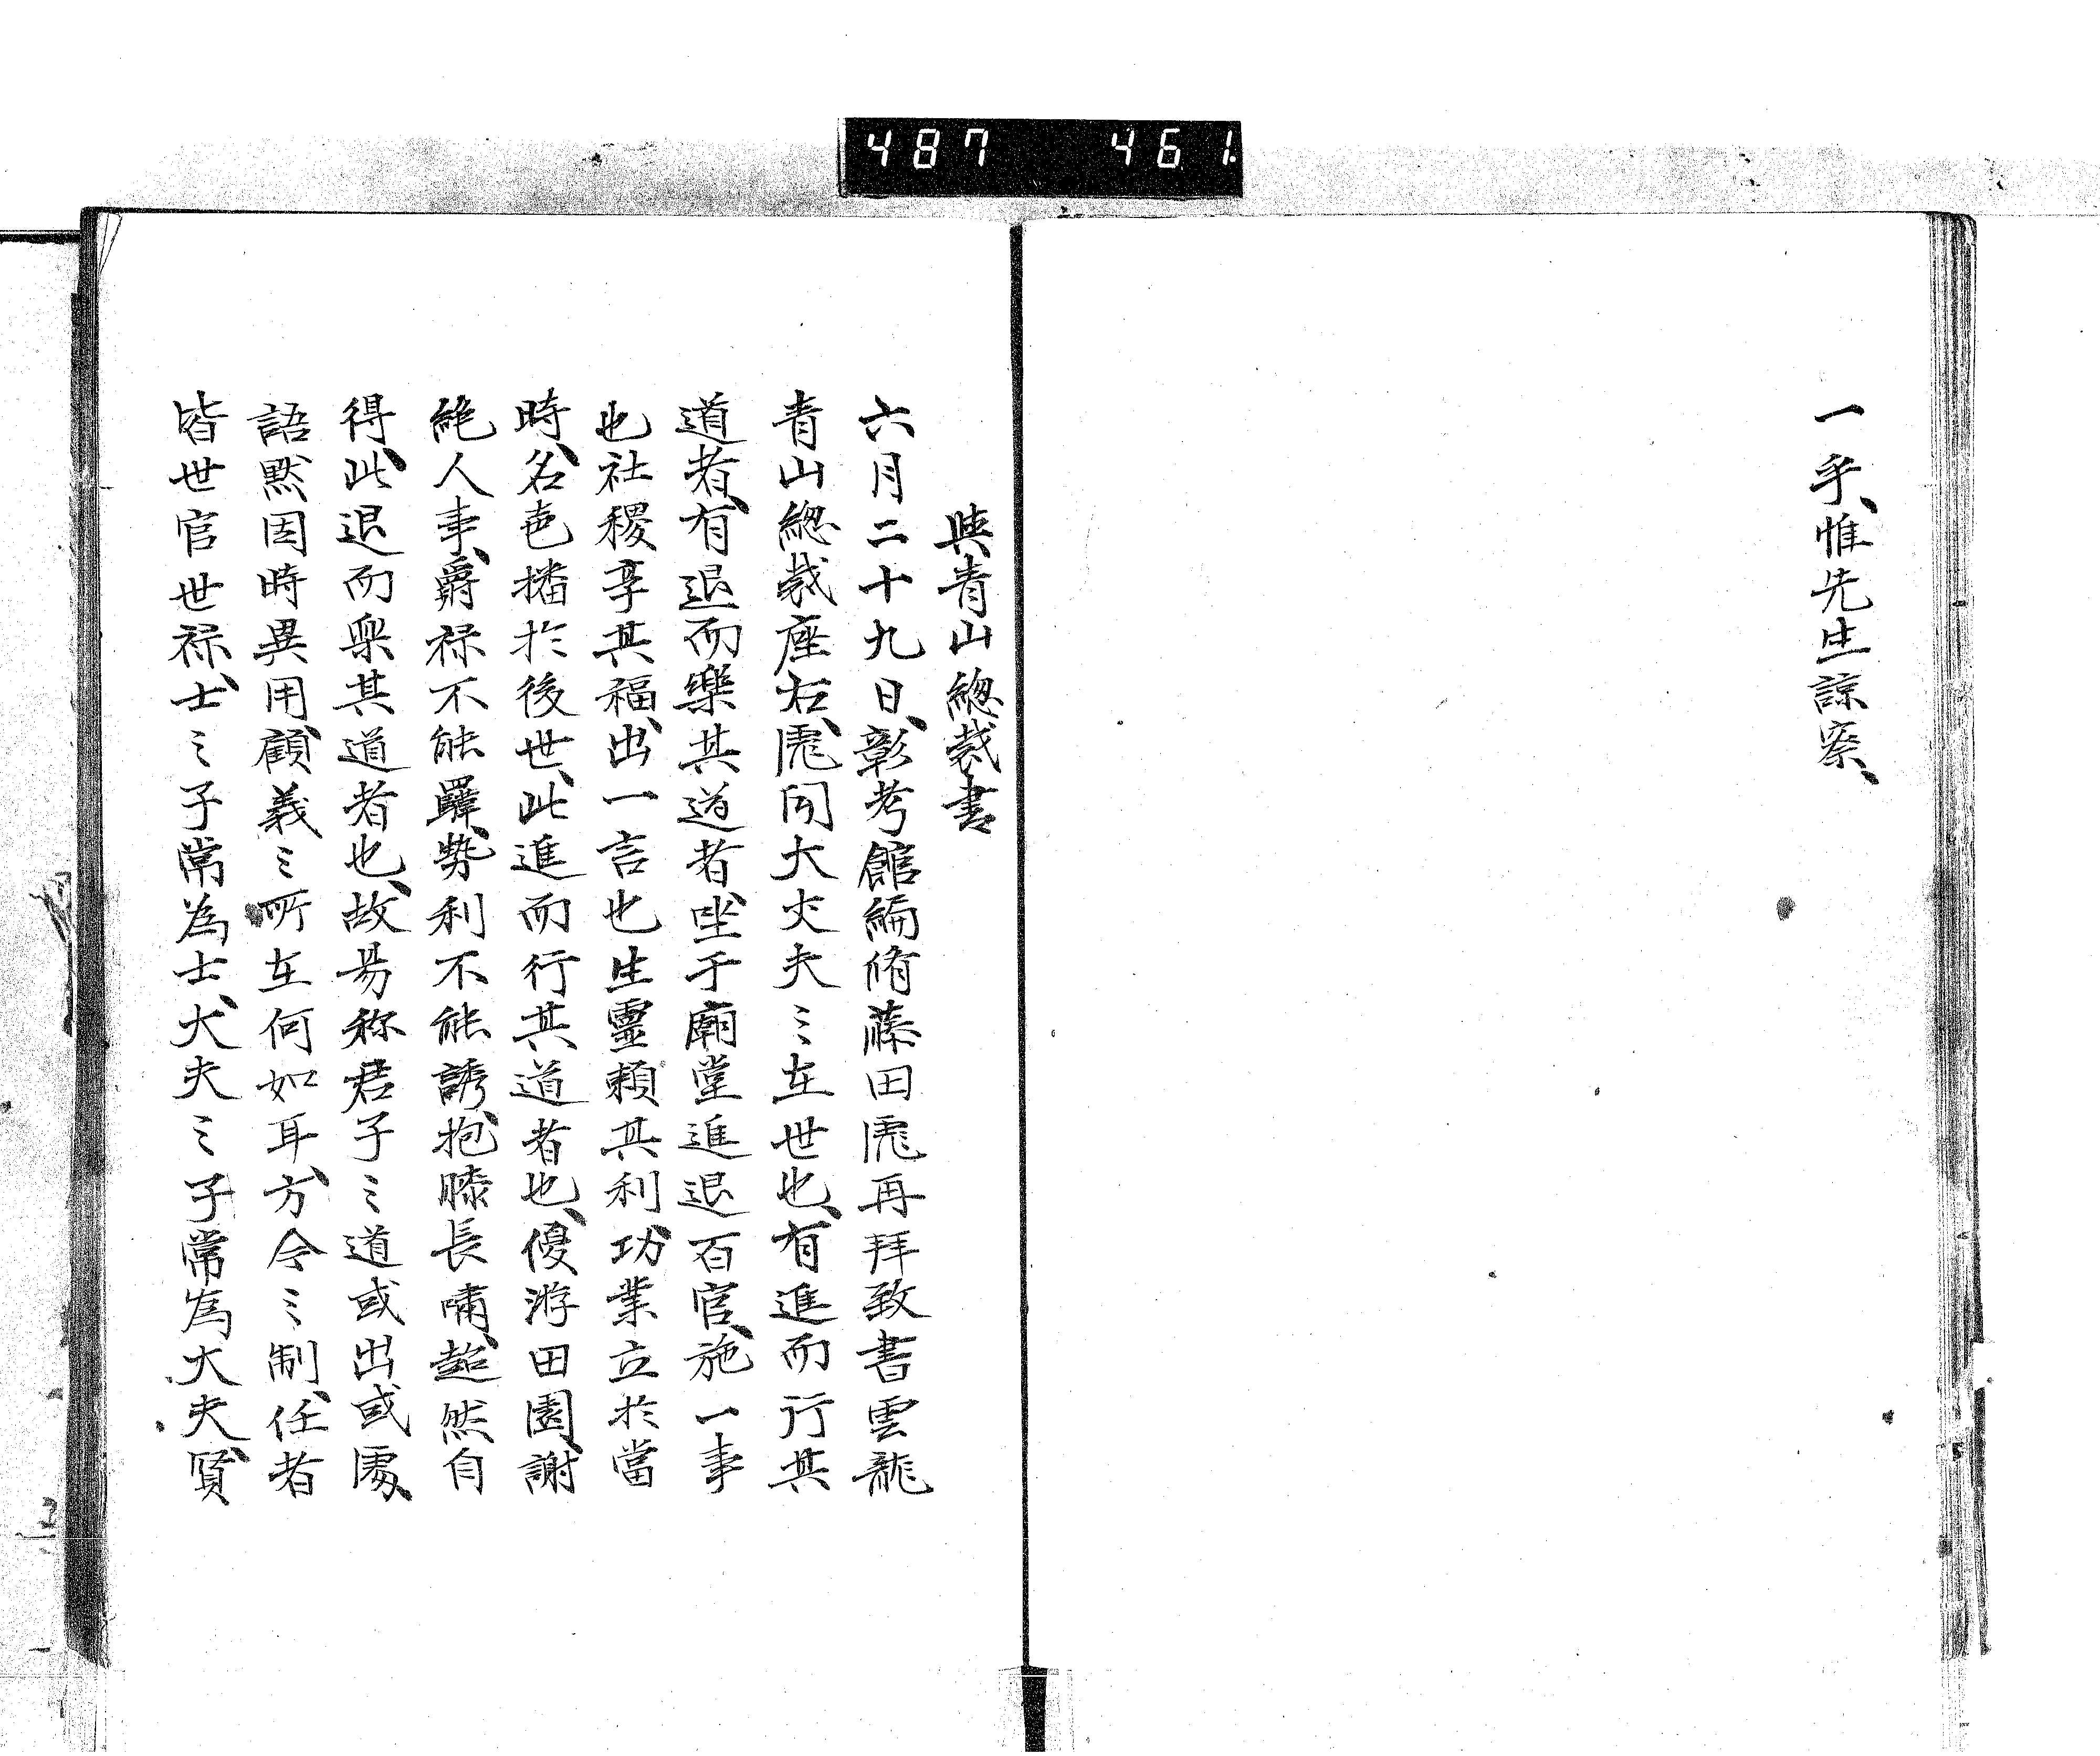 487 461
一乎、惟先生諒察、
與青山總裁書
六月二十九日、彰考館編脩藤田彪再拜致書雲龍
青山總裁座右、彪聞大丈夫々在世也、有進而行其
道者、有退而樂其道者、坐于廟堂進退百官、施一事
也社稷享其福、出一言也生靈賴其利、功業立於當
時、名花播於後世、此進而行其道者也、優游田園、謝
絶人事、爵禄不能羈、勢利不能誘、抱膝長嘯、超然自
得、此退而樂其道者也、故易称君子々道或出或處、
語默因時異用、顧義々所在何如耳、方今々制、任者
皆世官世禄、士々子常為士、大夫々子常為大夫、賢